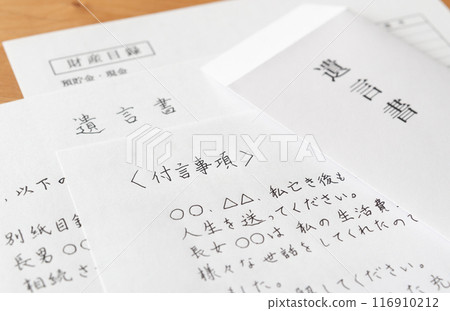 財産目録
預貯金・現金
遺言書
遺言書
、以下。
別紙目録
長男 〇〇
相続さ
<付言事項>
〇〇、△△、私亡き後も
人生を送ってください。
長女〇〇は私の生活費、
様々な世話をしてくれたので
ください。
PIXTA
116910212